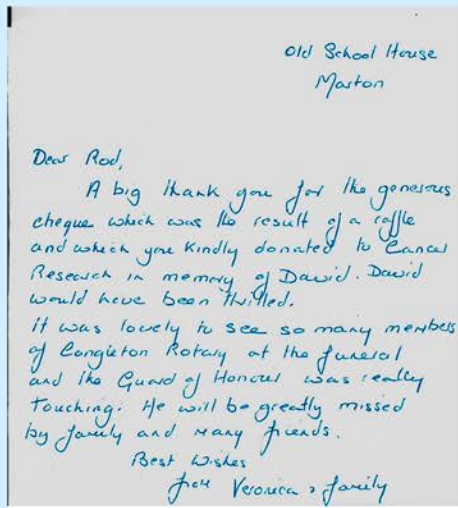 Old School House
Marton
Dear Rod,
A big thank you for the generous
cheque which was the result of a raffle
and which you kindly donated to Cancer
Research in memory of David. David
would have been thrilled.
it was lovely to see so many members
of Congleton Rotary at the funeral
and the Guard of Honour was really
touching. He will be greatly missed
by family and many friends.
Best Wishes
from Veronica & family